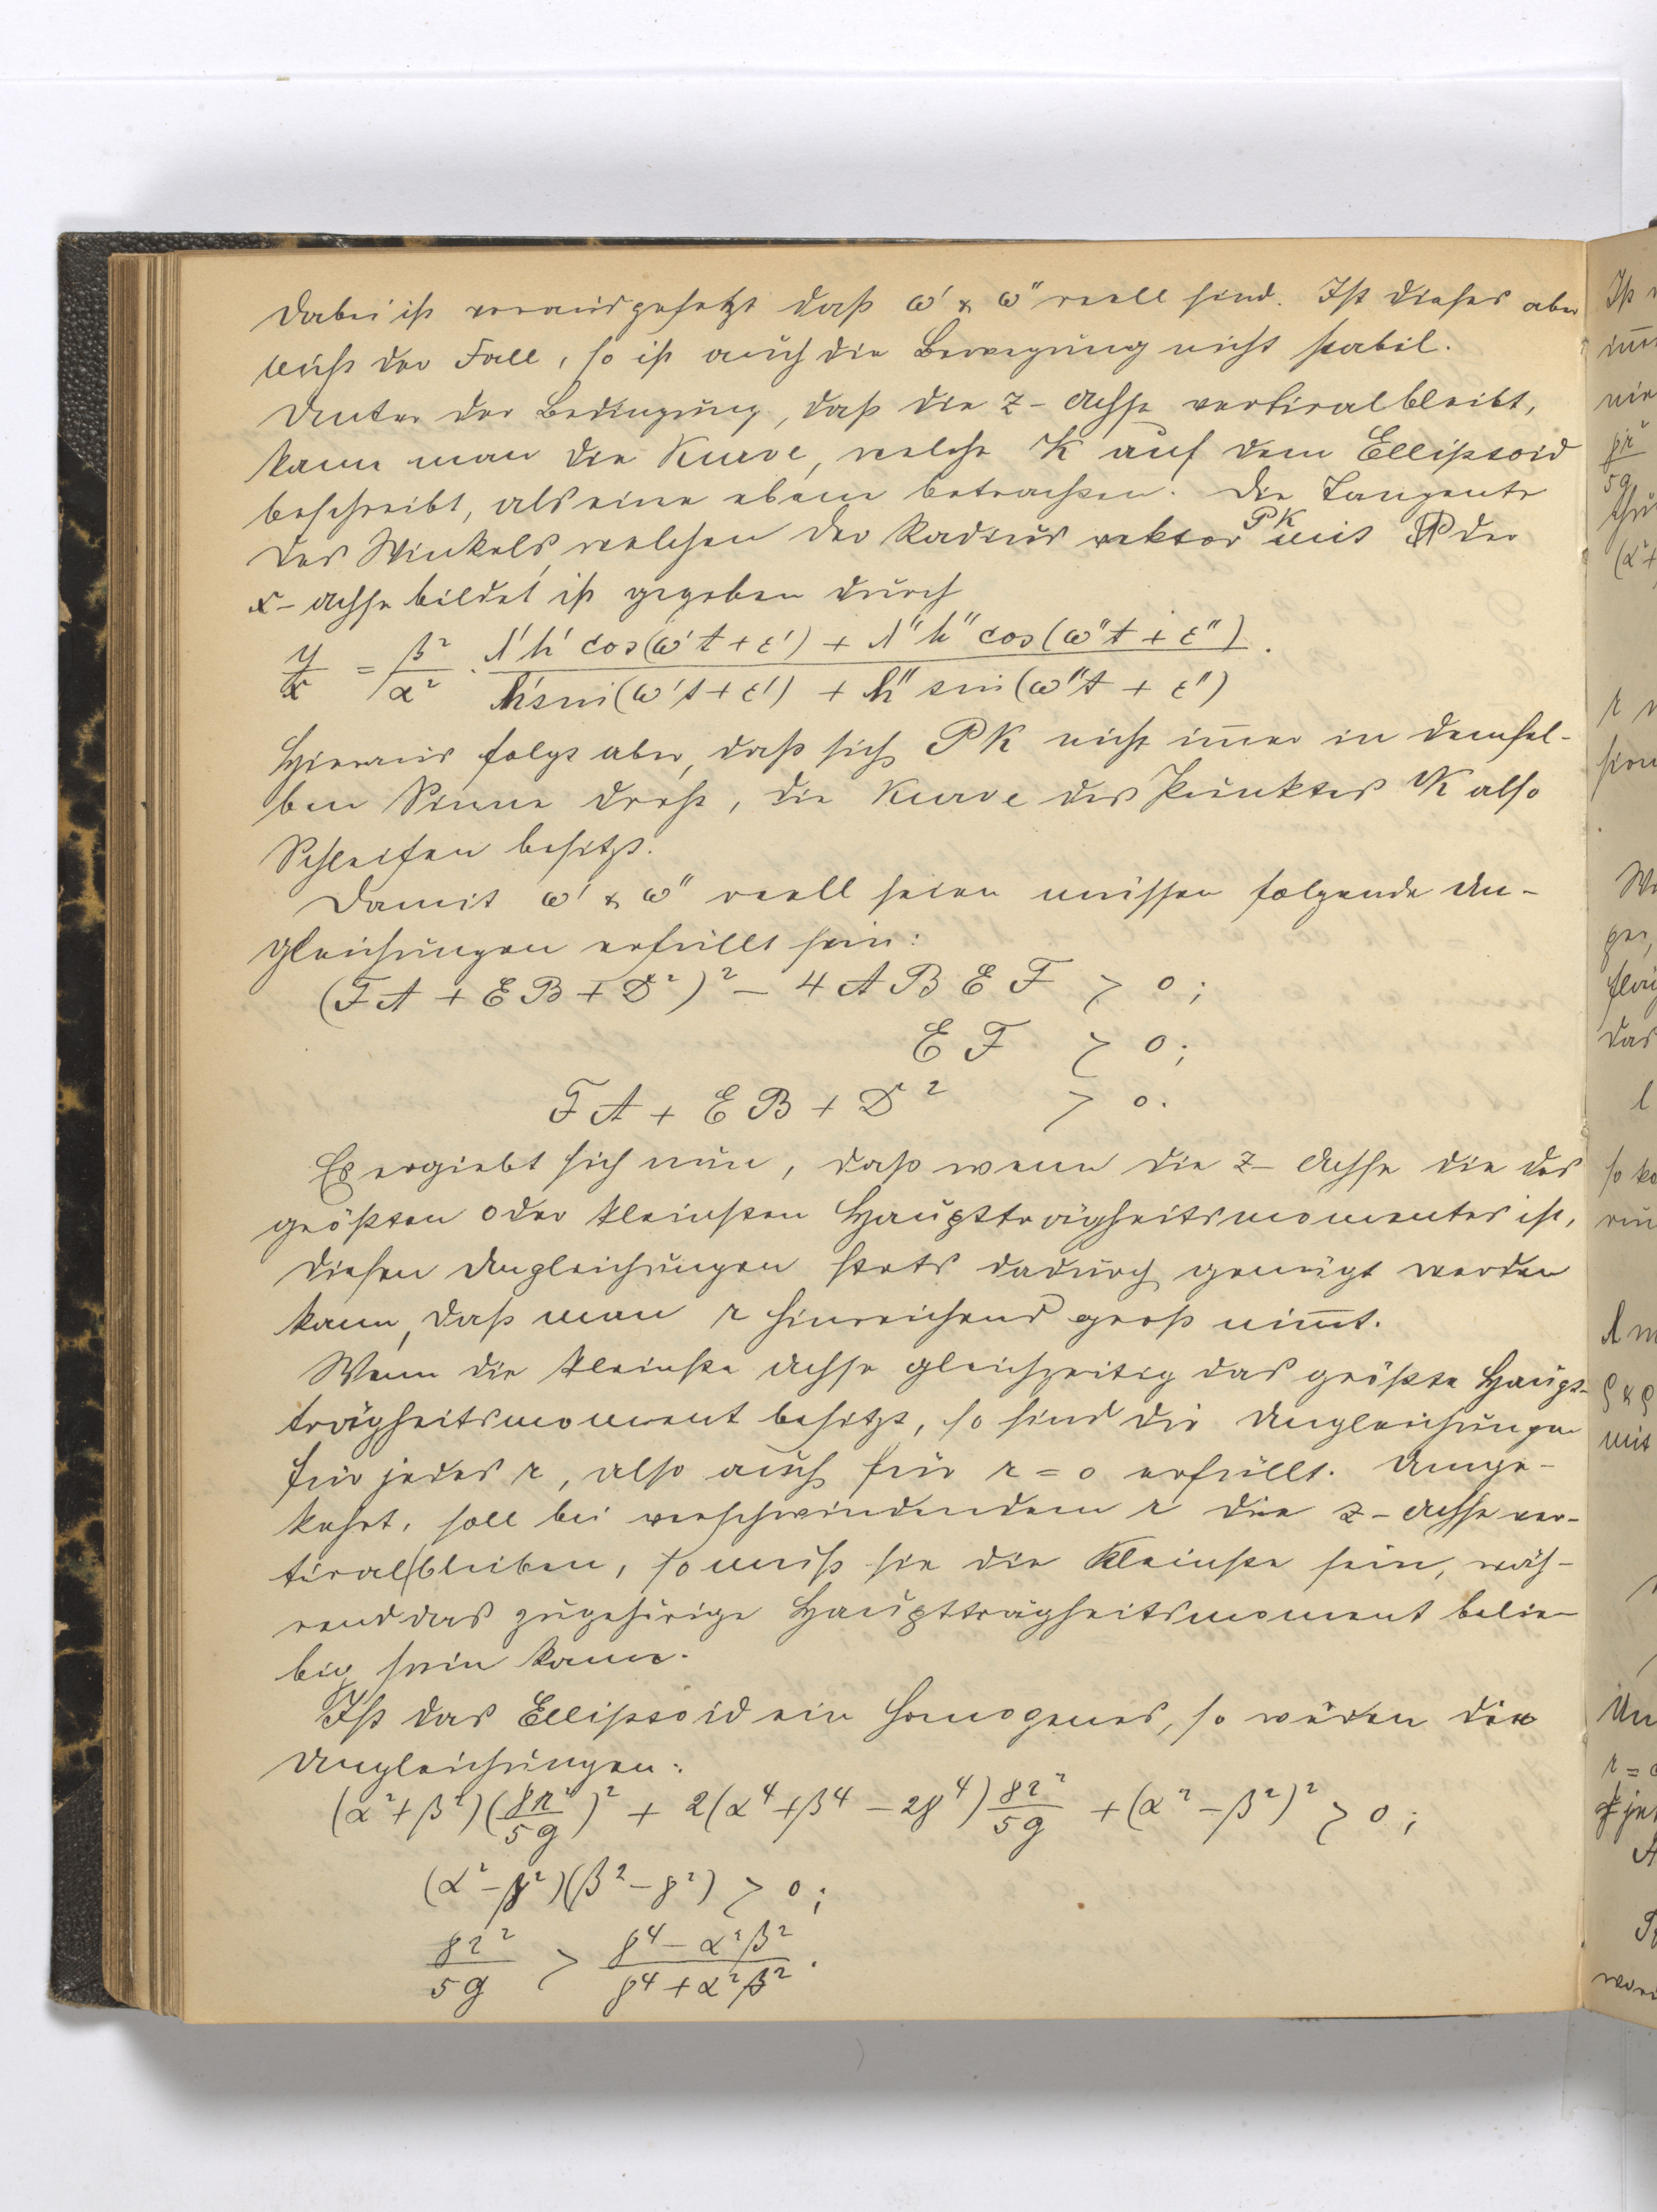 Dabei ist vorausgesetzt daß ω' & ω" reell sind. Ist dieses aber
nicht der Fall, so ist auch die Bewegung nicht stabil.
Unter der Bedingung, daß die z-Achse vertical bleibt,
kann man die Kurve, welche K auf dem Ellipsoid
beschreibt, als eine ebene betrachten. Die Tangente
des Winkels, welchen der Radius vektor PK mit der
x-Achse bildet ist gegeben durch
y/x = β²/α² · (λ'h' cos(ω't + ε') + λ"h" cos(ω"t + ε")) / (h' sin(ω't + ε') + h" sin(ω"t + ε")).
Hieraus folgt aber, daß sich PK nicht im̅er in demsel-
ben Sinne dreht, die Kurve des Punktes K also
Schleifen besitzt.
Damit ω' & ω" reell seien müssen folgende Un-
gleichungen erfüllt sein:
(FA + EB + D²)² – 4ABEF > 0;
EF > 0;
FA + EB + D² > 0.
Es ergiebt sich nun, daß wenn die z-Achse die des
größten oder kleinsten Hauptträgheitsmomentes ist,
diesen Ungleichungen stets dadurch genügt werden
kann, daß man r hinreichend groß nim̅t.
Wenn die kleinste Achse gleichzeitig das größte Haupt-
trägheitsmoment besitzt, so sind die Ungleichungen
für jedes r, also auch für r = 0 erfüllt. Umge-
kehrt, soll bei verschwindendem r die z-Achse ver-
tical bleiben, so muß sie die Kleinste sein, wäh-
rend das zugehörige Hauptträgheitsmoment belie-
big sein kann.
Ist das Ellipsoid ein homogenes, so wären die
Ungleichungen:
(α² + β²)(γr²/5g)² + 2(α⁴ + β⁴ – 2γ⁴) γr²/5g + (α² – β²)² > 0;
(α² – γ²)(β² – γ²) > 0;
γr²/5g > (γ⁴ – α²β²)/(γ⁴ + α²β²).